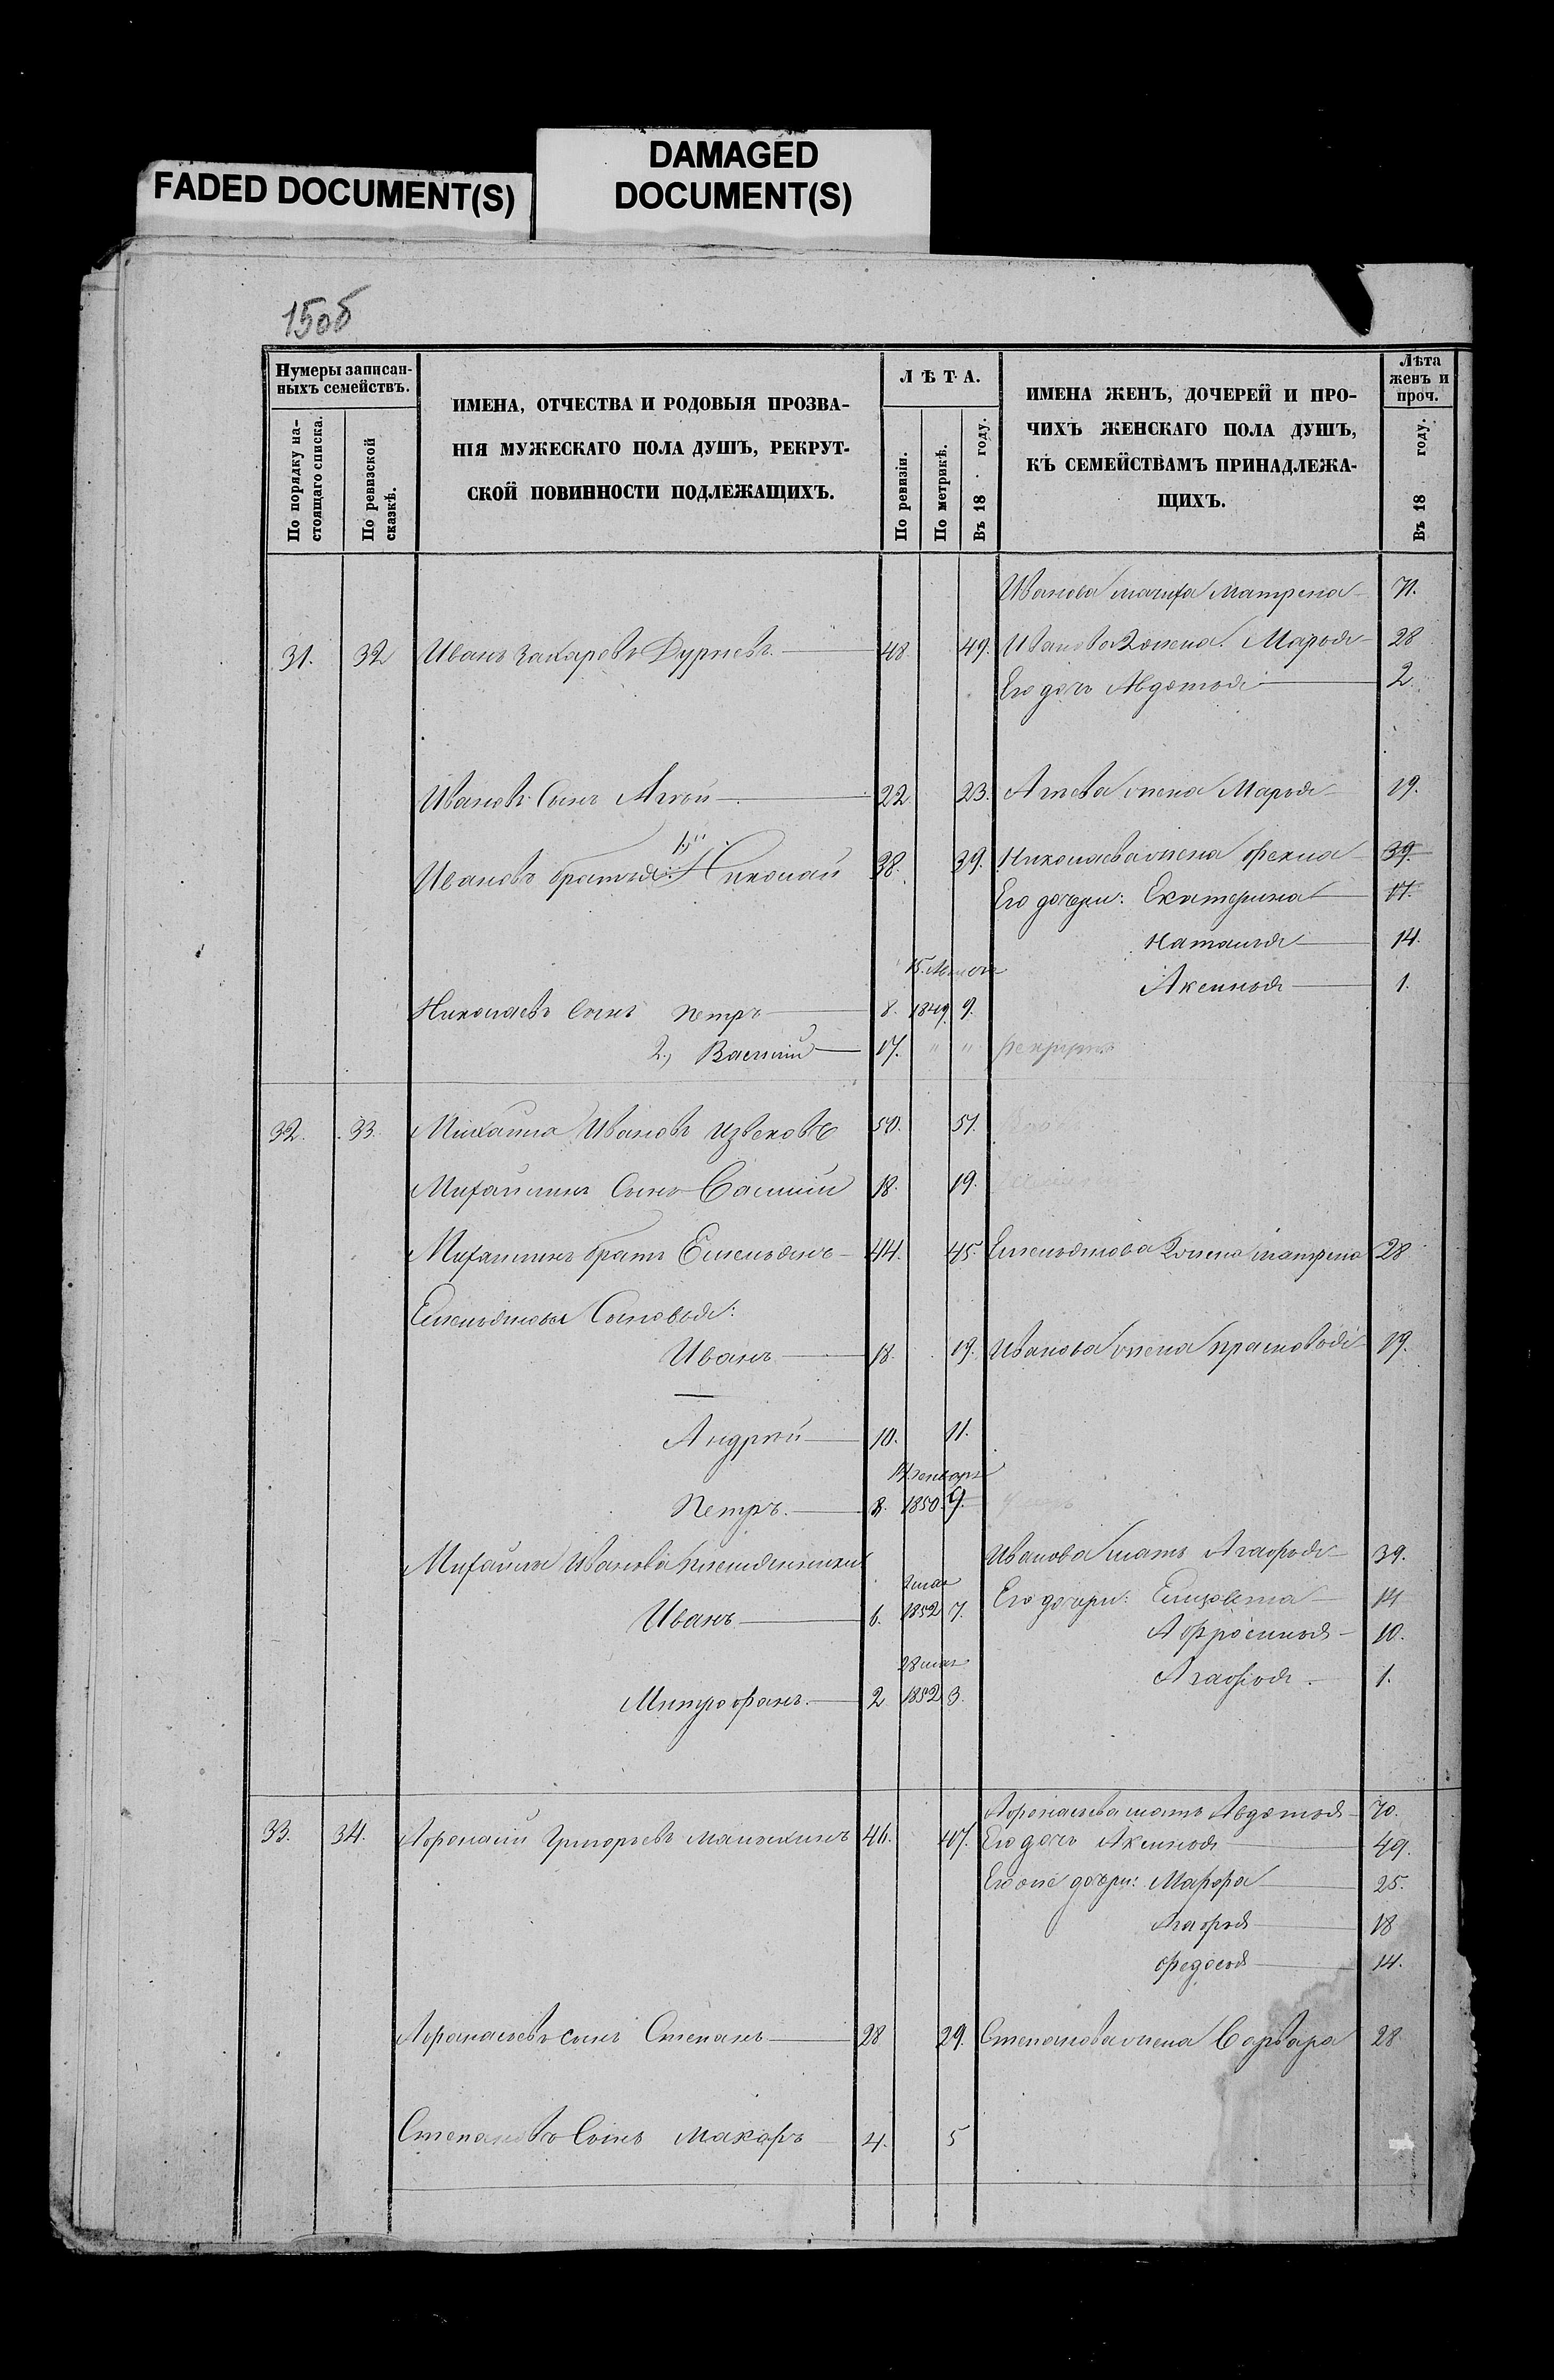 FADED DOCUMENT(S)
DAMAGED
DOCUMENT(S)
150б
Нумеры записан-
ныхъ семействъ.
По порядку на-
стоящаго списка.
По ревизской
сказкѣ.
ИМЕНА, ОТЧЕСТВА И РОДОВЫЯ ПРОЗВА-
НІЯ МУЖЕСКАГО ПОЛА ДУШЪ, РЕКРУТ-
СКОЙ ПОВИННОСТИ ПОДЛЕЖАЩИХЪ.
ЛѢТА.
По ревизіи.
По метрикѣ.
Въ 18 году.
ИМЕНА ЖЕНЪ, ДОЧЕРЕЙ И ПРО-
ЧИХЪ ЖЕНСКАГО ПОЛА ДУШЪ,
КЪ СЕМЕЙСТВАМЪ ПРИНАДЛЕЖА-
ЩИХЪ.
Лѣта
женъ и
проч.
Въ 18 году.
Иванова мачиха Матрена 71.
31. 32 Иванъ Захаровъ 48 49. Иванова жена Марья 28
Его дочь Авдотья 2
Ивановъ сынъ Агѣй 22 23. Агѣева жена Марья 19.
Ивановъ братья: 1) Николай 38. 39. Николаева жена Фекла 39.
Его дочери: Екатерина 17.
Наталья 14.
Аксинья 1.
15.
Николаевъ сынъ Петръ 8. 1849 9.
2., Василій 17. " " рекрутъ
32. 33. Михайла Ивановъ Извековъ 50. 51.
Михайлинъ сынъ Василій 18. 19.
Михайлинъ братъ Емельянъ 44. 45. Емельянова жена Матрена 28
Емельяновы сыновья:
Иванъ 18. 19. Иванова жена Прасковья 19.
Андрѣй 10. 11.
генваря
Петръ. 8. 1850. 9.
Михайлы Иванова племянники Иванова мать Агафья 39.
мая
Иванъ 6. 1852 7. Его дочери: Елизовета 14
Афросинья 10.
28 мая
Митрофанъ. 2 1852 3. Агафья 1.
Афонасьева мать Авдотья 70.
33. 34. Афонасій Григорьевъ 46. 47. Его дочь Аксинья 49.
Его же дочери: Марфа 25.
Агафья 18
Федосья 14.
Афонасьевъ сынъ Степанъ 28 29. Степанова жена Варвара 28
Степановъ сынъ Макаръ 4. 5